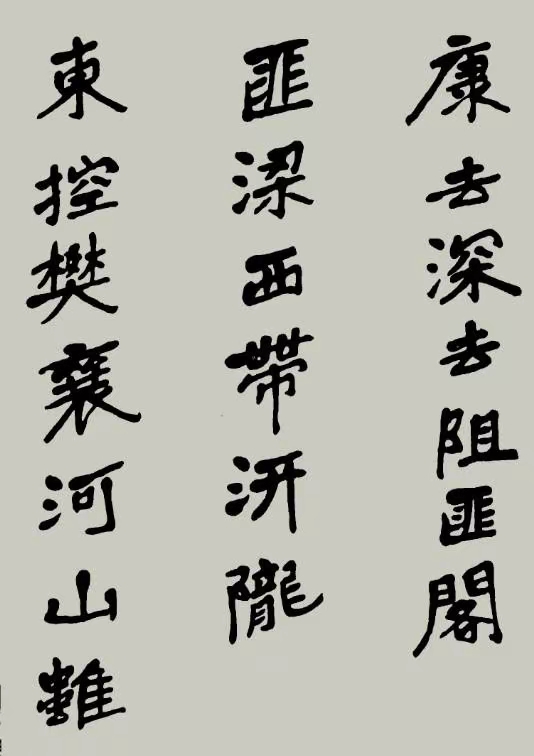 康去深去阻匪閣
匪梁西帶汧隴
東控樊襄河山雖